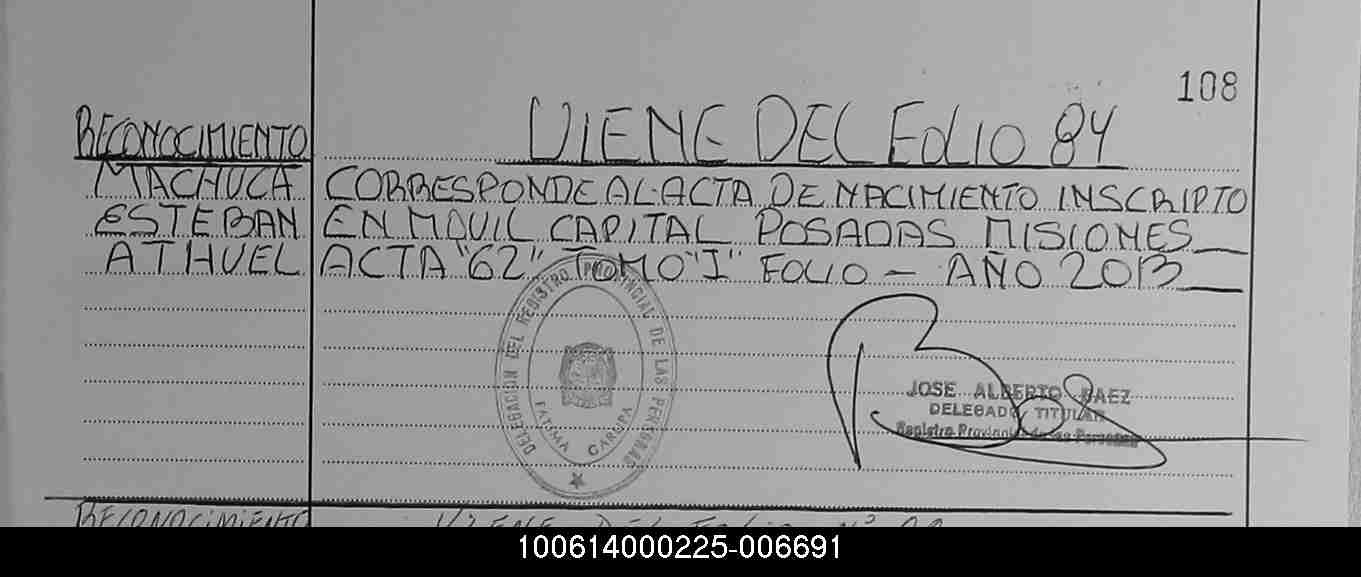 108
RECONOCIMIENTO
MACHUCA
ESTEBAN
ATHUEL
VIENE DEL FOLIO 84
CORRESPONDE AL ACTA DE NACIMIENTO INSCRIPTO
EN MOVIL CAPITAL POSADAS MISIONES
ACTA "62" TOMO "I" FOLIO — AÑO 2013
DELEGACION DEL REGISTRO PROVINCIAL DE LAS PERSONAS
FATIMA GARUPA
JOSE ALBERTO BAEZ
DELEGADO TITULAR
Registro Provincial de las Personas
RECONOCIMIENTO
VIENE DEL FOLIO Nº
100614000225-006691